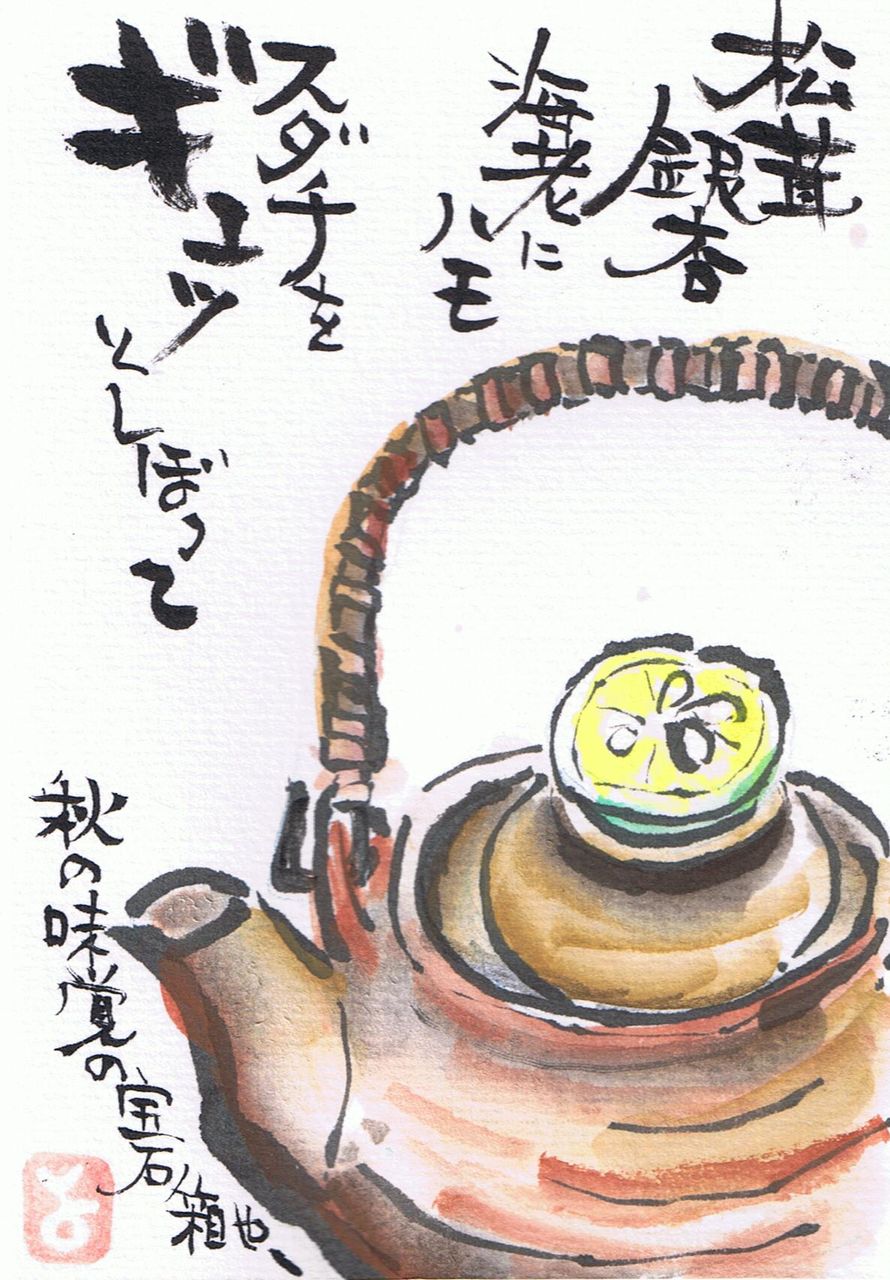 松茸
銀杏
海老に
ハモ
スダチを
ギュッ
としぼって
秋の味覚の
宝石箱や、
と